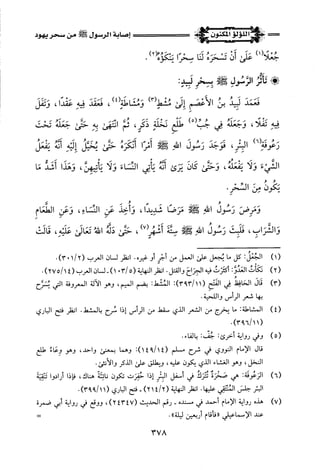 اللؤلؤ المكنون
إصابة الرسول ﷺ من سحر يهود
جُعْلًا(١) عَلَى أَنْ تَسْحَرَهُ لَنَا سِحْرًا يَنْكَؤُهُ(٢).
* تَأَثُّرُ الرَّسُولِ ﷺ بِسِحْرِ لَبِيدٍ:
فَعَمَدَ لَبِيدُ بنُ الْأَعْصَمِ إِلَى مُشْطٍ(٣) وَمُشَاطَةٍ(٤)، فَعَقَدَ فِيهِ عُقَدًا، وَتَفَلَ
فِيهِ تَفْلًا، وَجَعَلَهُ فِي جُبِّ(٥) طَلْعِ نَخْلَةٍ ذَكَرٍ، ثُمَّ انْتَهَى بِهِ حَتَّى جَعَلَهُ تَحْتَ
رَعُوفَةِ(٦) الْبِئْرِ، فَوَجَدَ رَسُولُ اللهِ ﷺ أَمْرًا أَنْكَرَهُ حَتَّى يُخَيَّلُ إِلَيْهِ أَنَّهُ يَفْعَلُ
الشَّيْءَ وَلَا يَفْعَلُهُ، وَحَتَّى كَانَ يَرَى أَنَّهُ يَأْتِي النِّسَاءَ وَلَا يَأْتِيهِنَّ، وَهَذَا أَشَدُّ مَا
يَكُونُ مِنَ السِّحْرِ.
وَمَرِضَ رَسُولُ اللهِ ﷺ مَرَضًا شَدِيدًا، وَأُخِذَ عَنِ النِّسَاءِ، وَعَنِ الطَّعَامِ
وَالشَّرَابِ، فَلَبِثَ رَسُولُ اللهِ ﷺ سِتَّةَ أَشْهُرٍ(٧)، حَتَّى دَلَّهُ اللهُ تَعَالَى عَلَيْهِ، قَالَتْ
(١) الْجُعْلُ: كل ما يُجعل على العمل من أجر أو غيره. انظر لسان العرب (٣٠١/٢).
(٢) نَكَأْتُ الْعَدُوَّ: أكثرتُ فيه الجراح والقتل. انظر النهاية (١٠٣/٥) - لسان العرب (٢٧٥/١٤).
(٣) قَالَ الحَافِظُ فِي الفَتْحِ (٣٩٣/١١): المُشْط: بضم الميم، وهو الآلة المعروفة التي يُسَرَّح
بها شعر الرأس واللحية.
(٤) المشاطة: ما يخرج من الشعر الذي سقط من الرأس إذا سُرح بالمشط. انظر فتح الباري
(٣٩٦/١١)
(٥) وفي رواية أخرى: جُف: بالفاء.
قال الإمام النووي في شرح مسلم (١٤٩/١٤): وهما بمعنى واحد، وهو وِعَاءُ طلع
النخل، وهو الغشاء الذي يكون عليه، ويطلق على الذكر والأنثى.
(٦) الرَعُوفَة: هي صَخْرَةٌ تُتْرَكُ في أسفل البئر إذا حُفِرت تكون ناتئةً هناك، فإذا أرادوا تَنْقِيَةَ
البئر جلس المُنَقِّي عليها. انظر النهاية (٢١٤/٢) - فتح الباري (٣٩٩/١١).
(٧) هذه رواية الإمام أحمد في مسنده - رقم الحديث (٢٤٣٤٧)، ووقع في رواية أبي ضمرة
عند الإسماعيلي «فأقام أربعين ليلة».
=
٣٧٨